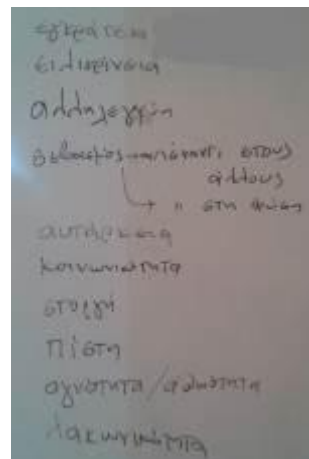 εγκράτεια
ειλικρίνεια
αλληλεγγύη
σεβασμός απέναντι στους
άλλους
" στη φύση
αυτάρκεια
κοινωνικότητα
στοργή
πίστη
αγνότητα/απλότητα
λακωνικότητα